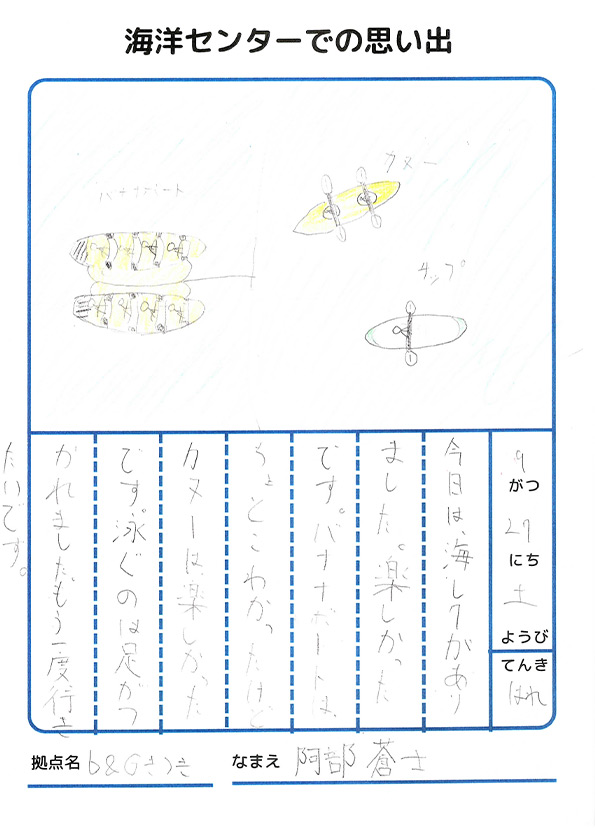 海洋センターでの思い出
バナナボート
カヌー
サップ
9
がつ
27
にち
土
ようび
てんき
はれ
今日は、海レクがあり
ました。楽しかった
です。バナナボートは、
ちょとこわかったけど
カヌーは、楽しかった
です。泳ぐのは足がつ
かれました。もう一度行き
たいです。
拠点名 b&Gさつき
なまえ 阿部 蒼士